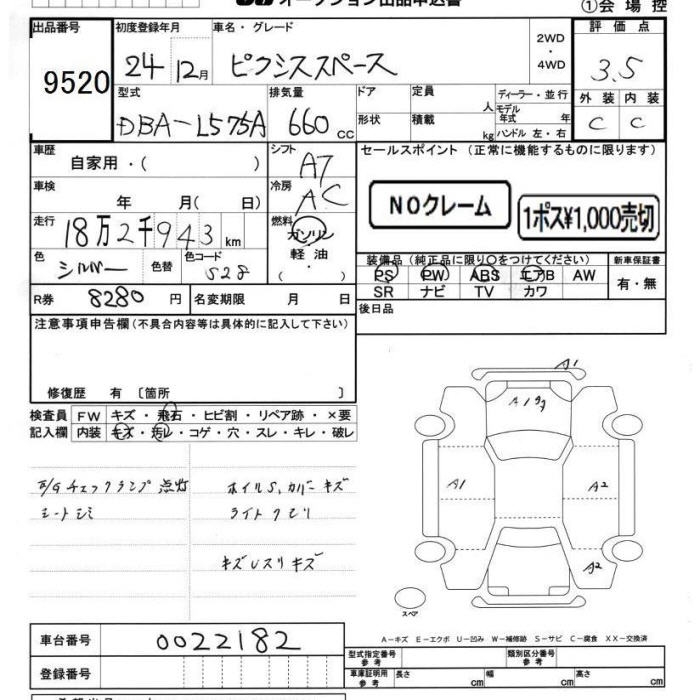 オークション出品申込書 ①会場控
出品番号 9520
初度登録年月 24 12月
車名・グレード ピクシススペース
2WD ・ 4WD
評価点 3.5
外装 C 内装 C
型式 DBA-L575A
排気量 660 cc
ドア 形状
定員 人
積載 kg
ディーラー・並行
モデル年式 年
ハンドル 左・右
車歴 自家用・( )
シフト AT
セールスポイント (正常に機能するものに限ります)
車検 年 月( 日)
冷房 AC
NOクレーム
1ポス¥1,000売切
走行 18万2千943 km
燃料 ガソリン 軽油 ・
色 シルバー 色替
色コード S28
装備品 (純正品に限り○をつけてください)
PS PW ABS エアB AW
SR ナビ TV カワ
新車保証書 有・無
R券 8280 円
名変期限 月 日
後日品
注意事項申告欄 (不具合内容等は具体的に記入して下さい)
修復歴 有 〔箇所 〕
検査員記入欄
FW キズ・飛石・ヒビ割・リペア跡・×要
内装 キズ・汚レ・コゲ・穴・スレ・キレ・破レ
E/Gチェックランプ点灯
シートシミ
ホイルS,カバーキズ
ライトクモリ
キズUスリキズ
A1
A1
A1
A2
A2
スペア
A-キズ E-エクボ U-凹み W-補修跡 S-サビ C-腐食 XX-交換済
車台番号 0022182
登録番号
型式指定番号 参考
類別区分番号 参考
車庫証明用 参考 長さ cm 幅 cm 高さ cm